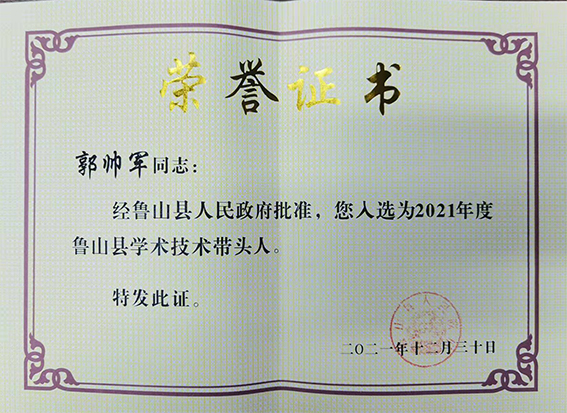 荣誉证书
郭帅军同志：
经鲁山县人民政府批准，您入选为2021年度
鲁山县学术技术带头人。
特发此证。
二〇二一年十二月三十日